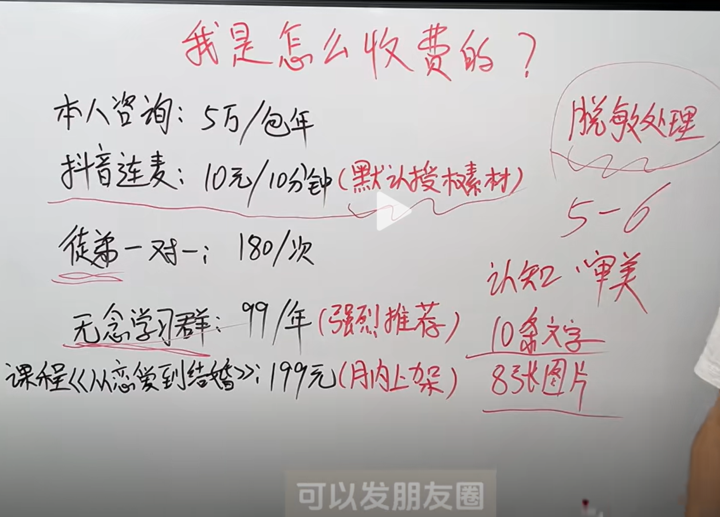 我是怎么收费的？
本人咨询：5万/包年
抖音连麦：10元/10分钟(默认授权素材)
徒弟一对一：180/次
无念学习群：99/年(强烈推荐)
课程《从恋爱到结婚》：199元(月内上架)
脱敏处理
5-6
认知·审美
10条文字
8张图片
可以发朋友圈